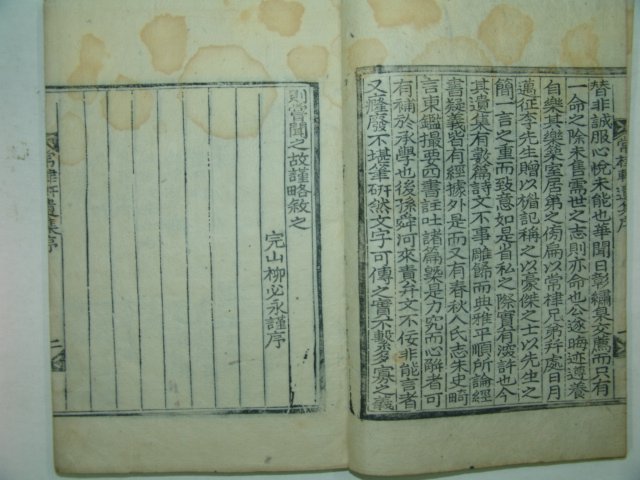 替非誠服心悅未能也華聞日彰繡臯交薦而只有
一命之除未售需世之志則亦命也公遂晦迹尊養
自樂其樂築室居第之傍扁以常棣兄弟幷處日月
邁征李先生贈以楣記稱之以豪傑之士以先生之
簡一言之重而致意如是省私之際實有深許也今
其遺集有數篇詩文不事雕餙而典雅平順所論經
書疑義皆有經據外是而又有春秋人氏志朱史畸
言東鑑撮要西書註吐諸篇槩是力究而心辭者可
有補於承學也後孫舜河來責弁文不佞非能言者
又癃廢不堪筆硏然文字可傳之實不繫多寡之義
則嘗聞之故謹略敘之
完山柳必永謹序
遺集序
二